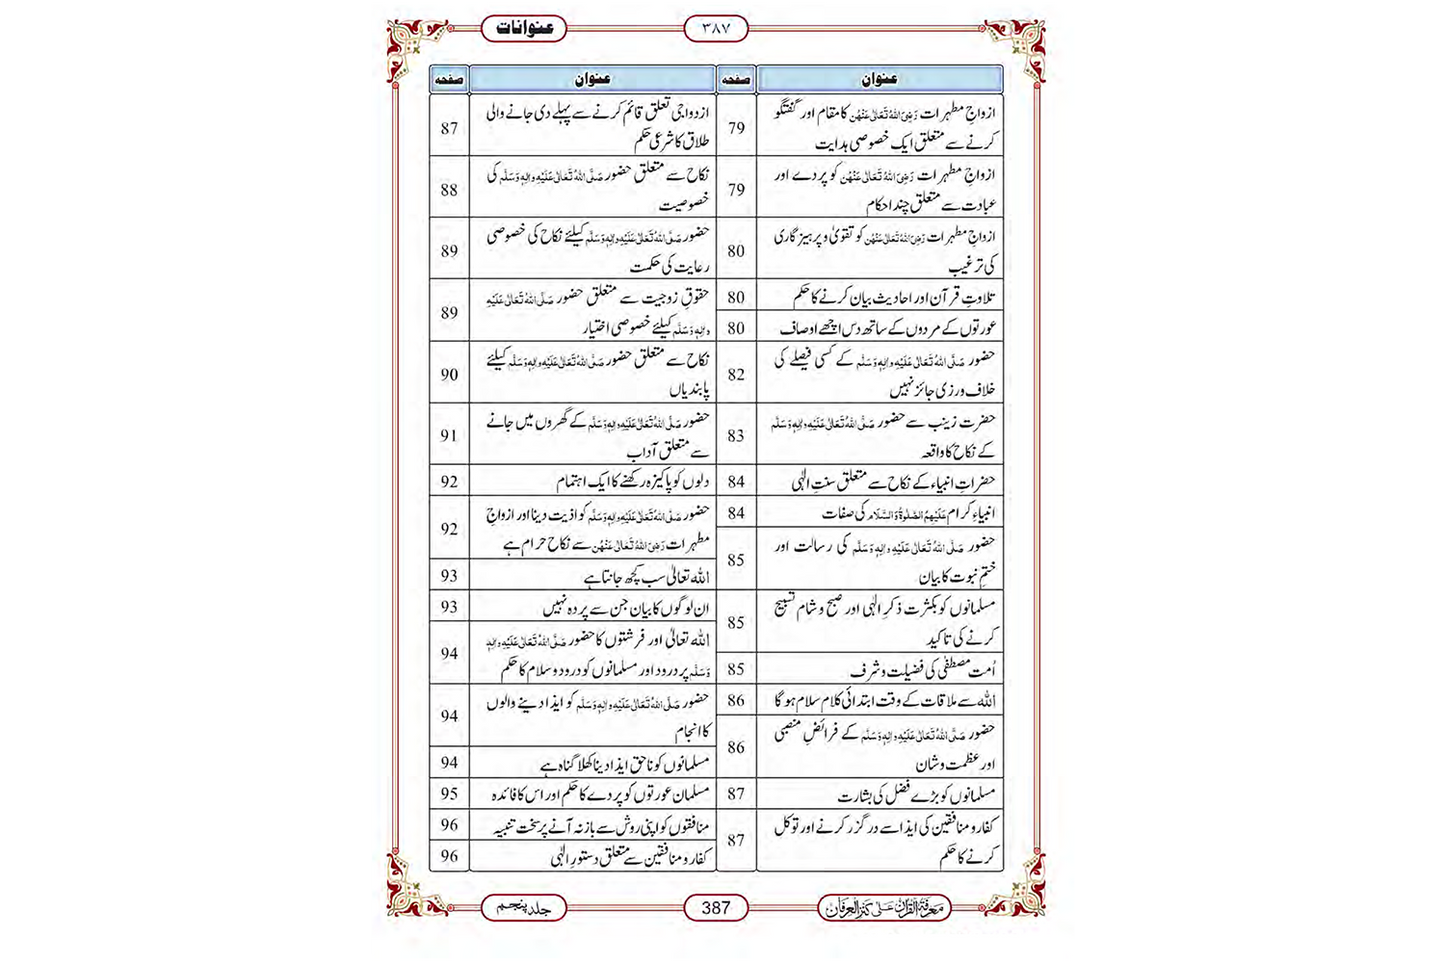 عنوانات
۳۸۷
عنوان
صفحہ
ازواجِ مطہرات رَضِیَ اللہُ تَعَالٰی عَنْہُن کا مقام اور گفتگو
کرنے سے متعلق ایک خصوصی ہدایت
79
ازواجِ مطہرات رَضِیَ اللہُ تَعَالٰی عَنْہُن کو پردے اور
عبادت سے متعلق چند احکام
79
ازواجِ مطہرات رَضِیَ اللہُ تَعَالٰی عَنْہُن کو تقویٰ و پرہیزگاری
کی ترغیب
80
تلاوتِ قرآن اور احادیث بیان کرنے کا حکم
80
عورتوں کے مردوں کے ساتھ دس اچھے اوصاف
80
حضور صَلَّی اللہُ تَعَالٰی عَلَیْہِ وَاٰلِہٖ وَسَلَّم کے کسی فیصلے کی
خلاف ورزی جائز نہیں
82
حضرت زینب سے حضور صَلَّی اللہُ تَعَالٰی عَلَیْہِ وَاٰلِہٖ وَسَلَّم
کے نکاح کا واقعہ
83
حضراتِ انبیاء کے نکاح سے متعلق سنتِ الٰہی
84
انبیاءِ کرام عَلَیْہِمُ الصَّلٰوۃُ وَالسَّلَام کی صفات
84
حضور صَلَّی اللہُ تَعَالٰی عَلَیْہِ وَاٰلِہٖ وَسَلَّم کی رسالت اور
ختمِ نبوت کا بیان
85
مسلمانوں کو بکثرت ذکرِ الٰہی اور صبح و شام تسبیح
کرنے کی تاکید
85
اُمت مصطفٰی کی فضیلت و شرف
85
اللہ سے ملاقات کے وقت ابتدائی کلام سلام ہوگا
86
حضور صَلَّی اللہُ تَعَالٰی عَلَیْہِ وَاٰلِہٖ وَسَلَّم کے فرائضِ منصبی
اور عظمت و شان
86
مسلمانوں کو بڑے فضل کی بشارت
87
کفار و منافقین کی ایذا سے درگزر کرنے اور توکل
کرنے کا حکم
87
عنوان
صفحہ
ازدواجی تعلق قائم کرنے سے پہلے دی جانے والی
طلاق کا شرعی حکم
87
نکاح سے متعلق حضور صَلَّی اللہُ تَعَالٰی عَلَیْہِ وَاٰلِہٖ وَسَلَّم کی
خصوصیت
88
حضور صَلَّی اللہُ تَعَالٰی عَلَیْہِ وَاٰلِہٖ وَسَلَّم کیلئے نکاح کی خصوصی
رعایت کی حکمت
89
حقوقِ زوجیت سے متعلق حضور صَلَّی اللہُ تَعَالٰی عَلَیْہِ
وَاٰلِہٖ وَسَلَّم کیلئے خصوصی اختیار
89
نکاح سے متعلق حضور صَلَّی اللہُ تَعَالٰی عَلَیْہِ وَاٰلِہٖ وَسَلَّم کیلئے
پابندیاں
90
حضور صَلَّی اللہُ تَعَالٰی عَلَیْہِ وَاٰلِہٖ وَسَلَّم کے گھروں میں جانے
سے متعلق آداب
91
دلوں کو پاکیزہ رکھنے کا ایک اہتمام
92
حضور صَلَّی اللہُ تَعَالٰی عَلَیْہِ وَاٰلِہٖ وَسَلَّم کو اذیت دینا اور ازواجِ
مطہرات رَضِیَ اللہُ تَعَالٰی عَنْہُن سے نکاح حرام ہے
92
اللہ تعالیٰ سب کچھ جانتا ہے
93
ان لوگوں کا بیان جن سے پردہ نہیں
93
اللہ تعالیٰ اور فرشتوں کا حضور صَلَّی اللہُ تَعَالٰی عَلَیْہِ وَاٰلِہٖ
وَسَلَّم پر درود اور مسلمانوں کو درود و سلام کا حکم
94
حضور صَلَّی اللہُ تَعَالٰی عَلَیْہِ وَاٰلِہٖ وَسَلَّم کو ایذا دینے والوں
کا انجام
94
مسلمانوں کو ناحق ایذا دینا کھلا گناہ ہے
94
مسلمان عورتوں کو پردے کا حکم اور اس کا فائدہ
95
منافقوں کو اپنی روش سے باز نہ آنے پر سخت تنبیہ
96
کفار و منافقین سے متعلق دستورِ الٰہی
96
معرفۃ القرآن علٰی کنز العرفان
387
جلد پنجم